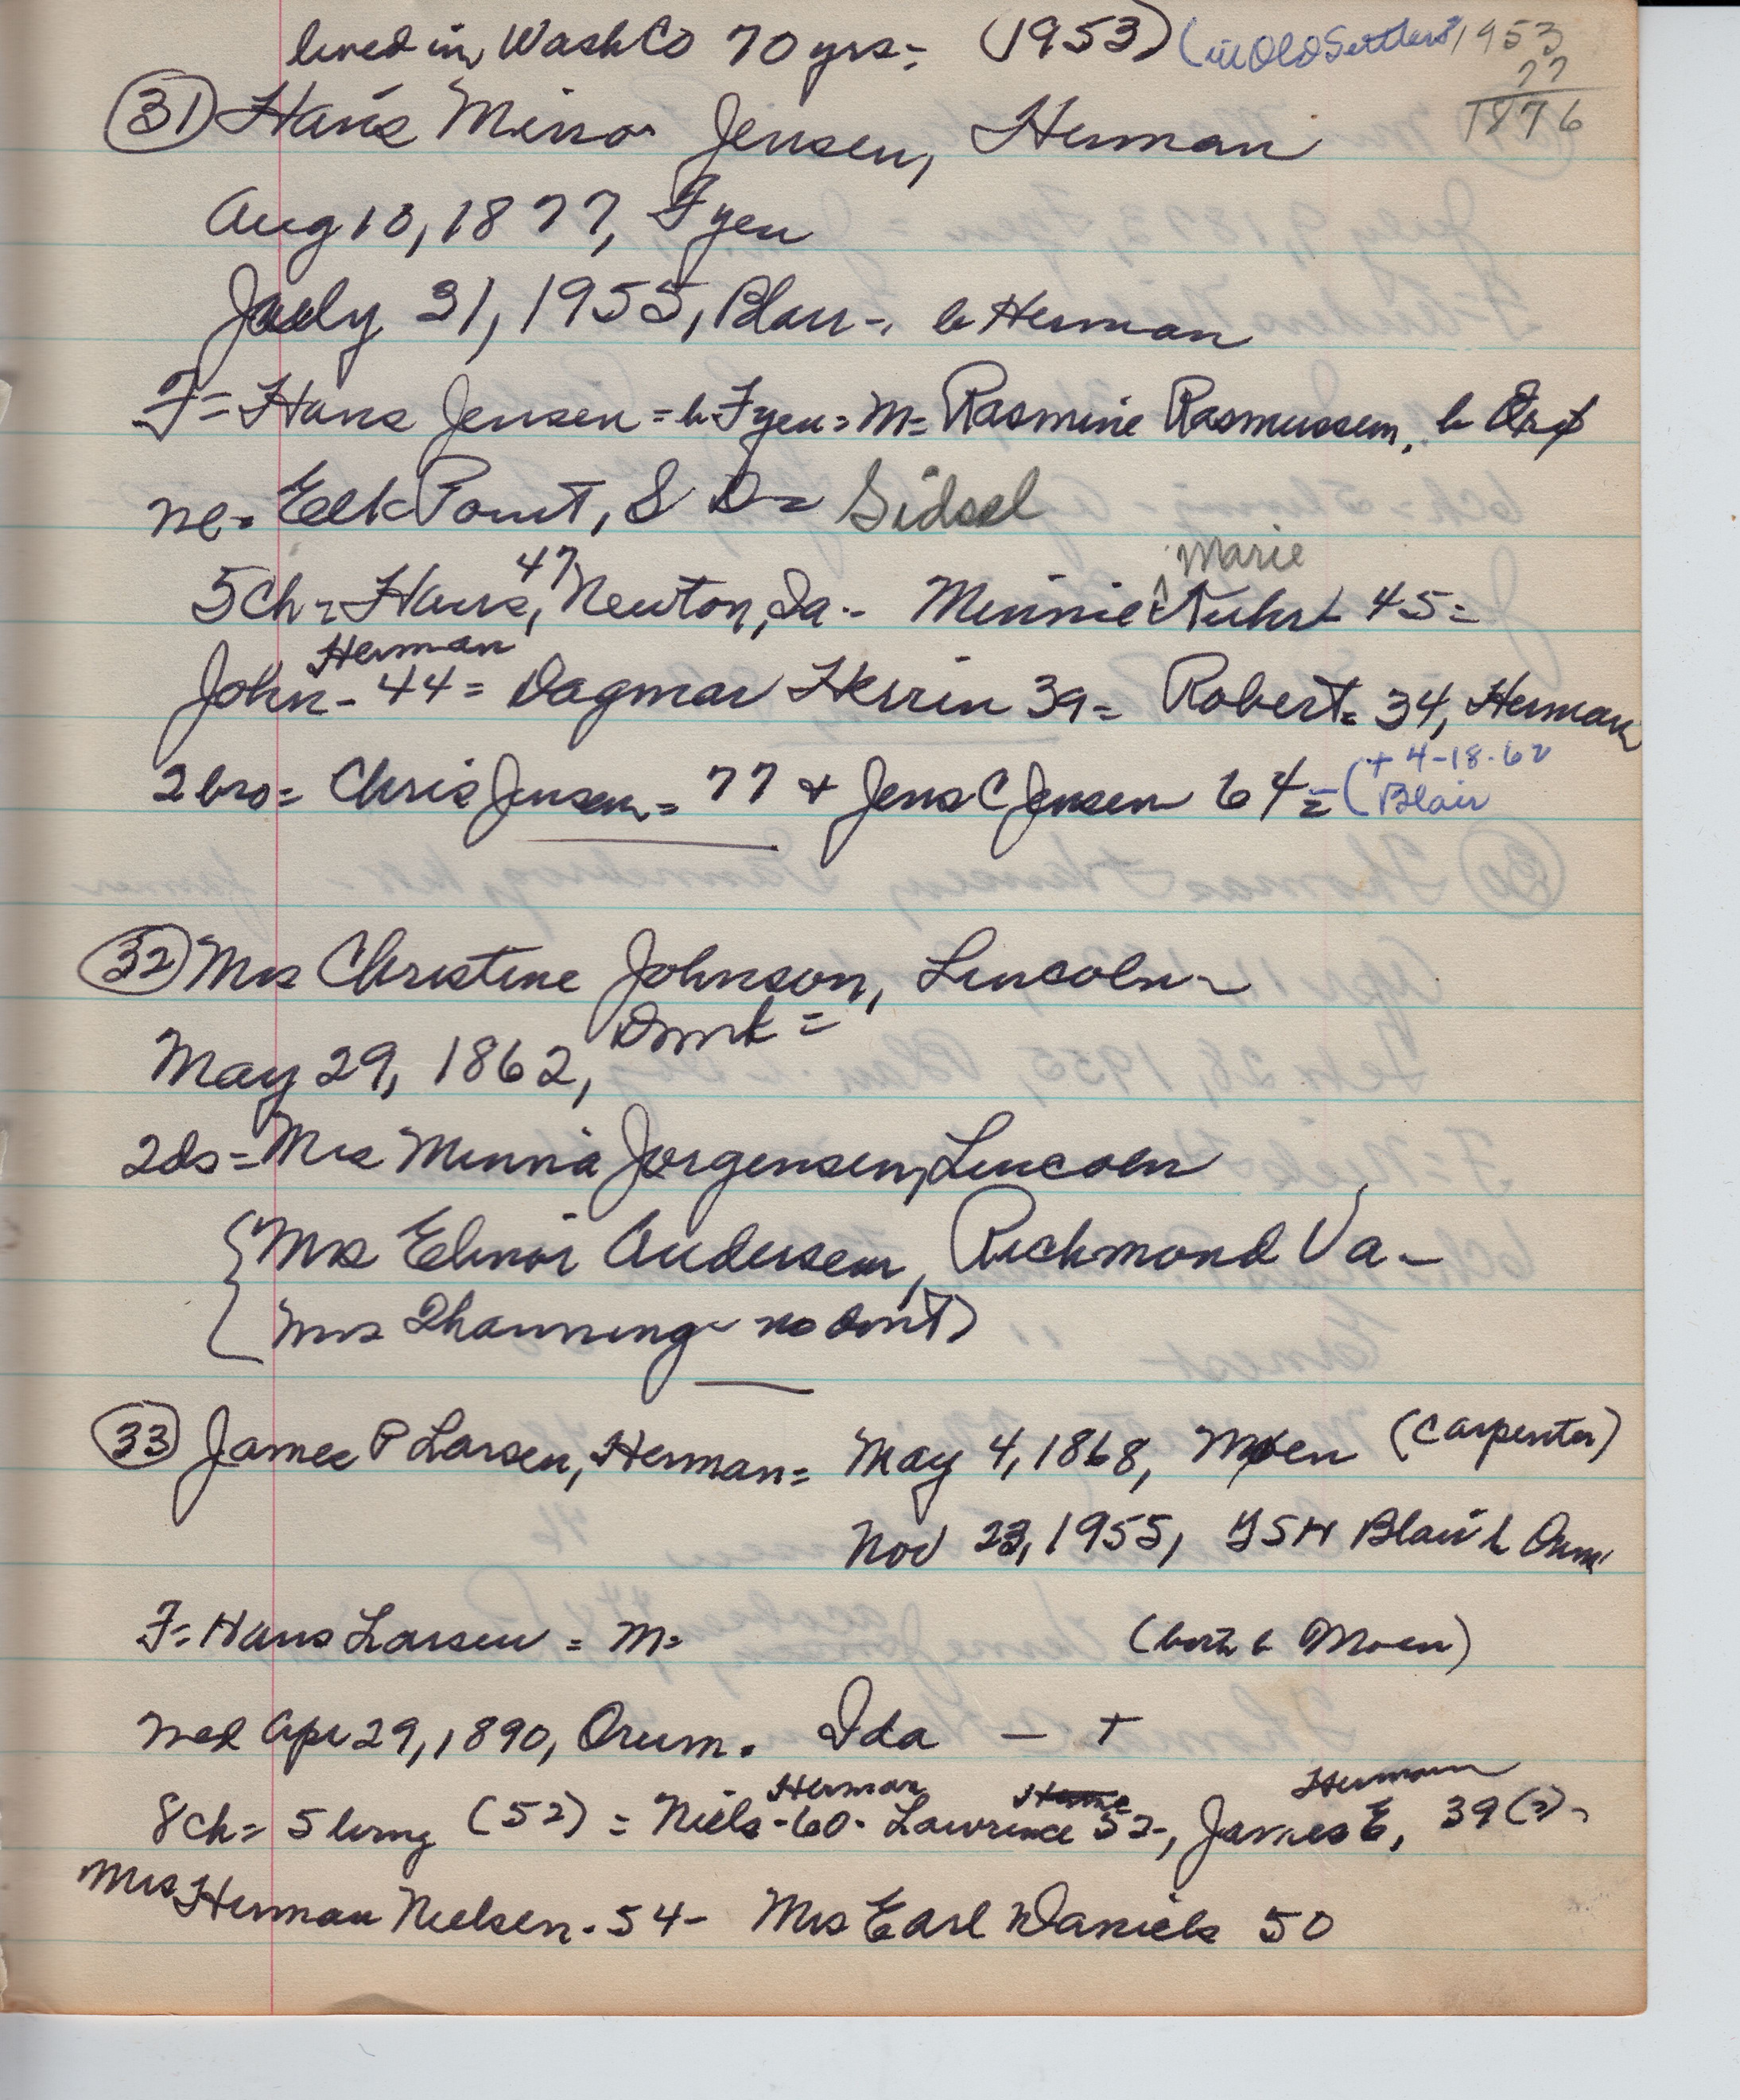 lived in Wash Co 70 yrs - (1953) (in Old Settlers) 1953
77
1876
(31) Hans Minor Jensen, Herman
Aug 10, 1877, Fyen
July 31, 1955, Blair -, b Herman
F = Hans Jensen = b Fyen = M = Rasmine Rasmussen, b
ne = Elk Point, S D = Sidsel
47 Marie
5 Ch = Hans, Newton, Ia - Minnie ^ Kuhr 45 =
Herman
John - 44 = Dagmar Herrin 39 = Robert = 34, Herman
2 bro = Chris Jensen = 77 + Jens C Jensen 64 = (+ 4-18-62
Blair
(32) Mrs Christine Johnson, Lincoln -
May 29, 1862, Dmrk =
2 ds = Mrs Minnia Jorgensen, Lincoln
{ Mrs Elinor Andersen, Richmond Va -
{ Mrs Thanning - no Omt)
(33) James P Larsen, Herman = May 4, 1868, Møen (Carpenter)
Nov 23, 1955, GSH Blair b Orum
F = Hans Larsen = M = (both b Moen)
med Apr 29, 1890, Orum. Ida — +
Herman Herman
8 ch = 5 living (52) = Niels - 60 - Lawrence 52 -, James E, 39 (?) -
Mrs Herman Nielsen - 54 - Mrs Earl Daniels 50